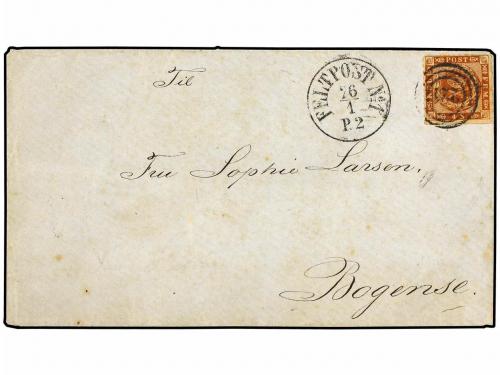 Til
FELTPOST No 1.
26
1
P. 2
POST
4 S
Fru Sophie Larsen,
Bogense.